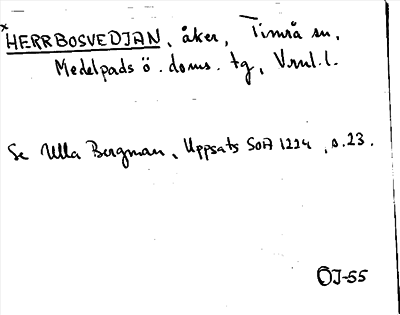 ×HERRBOSVEDJAN, åker, Timrå sn,
Medelpads ö. doms. tg, Vrnl.l.
Se Ulla Bergman, Uppsats SOA 1224, s. 23.
ÖJ-55